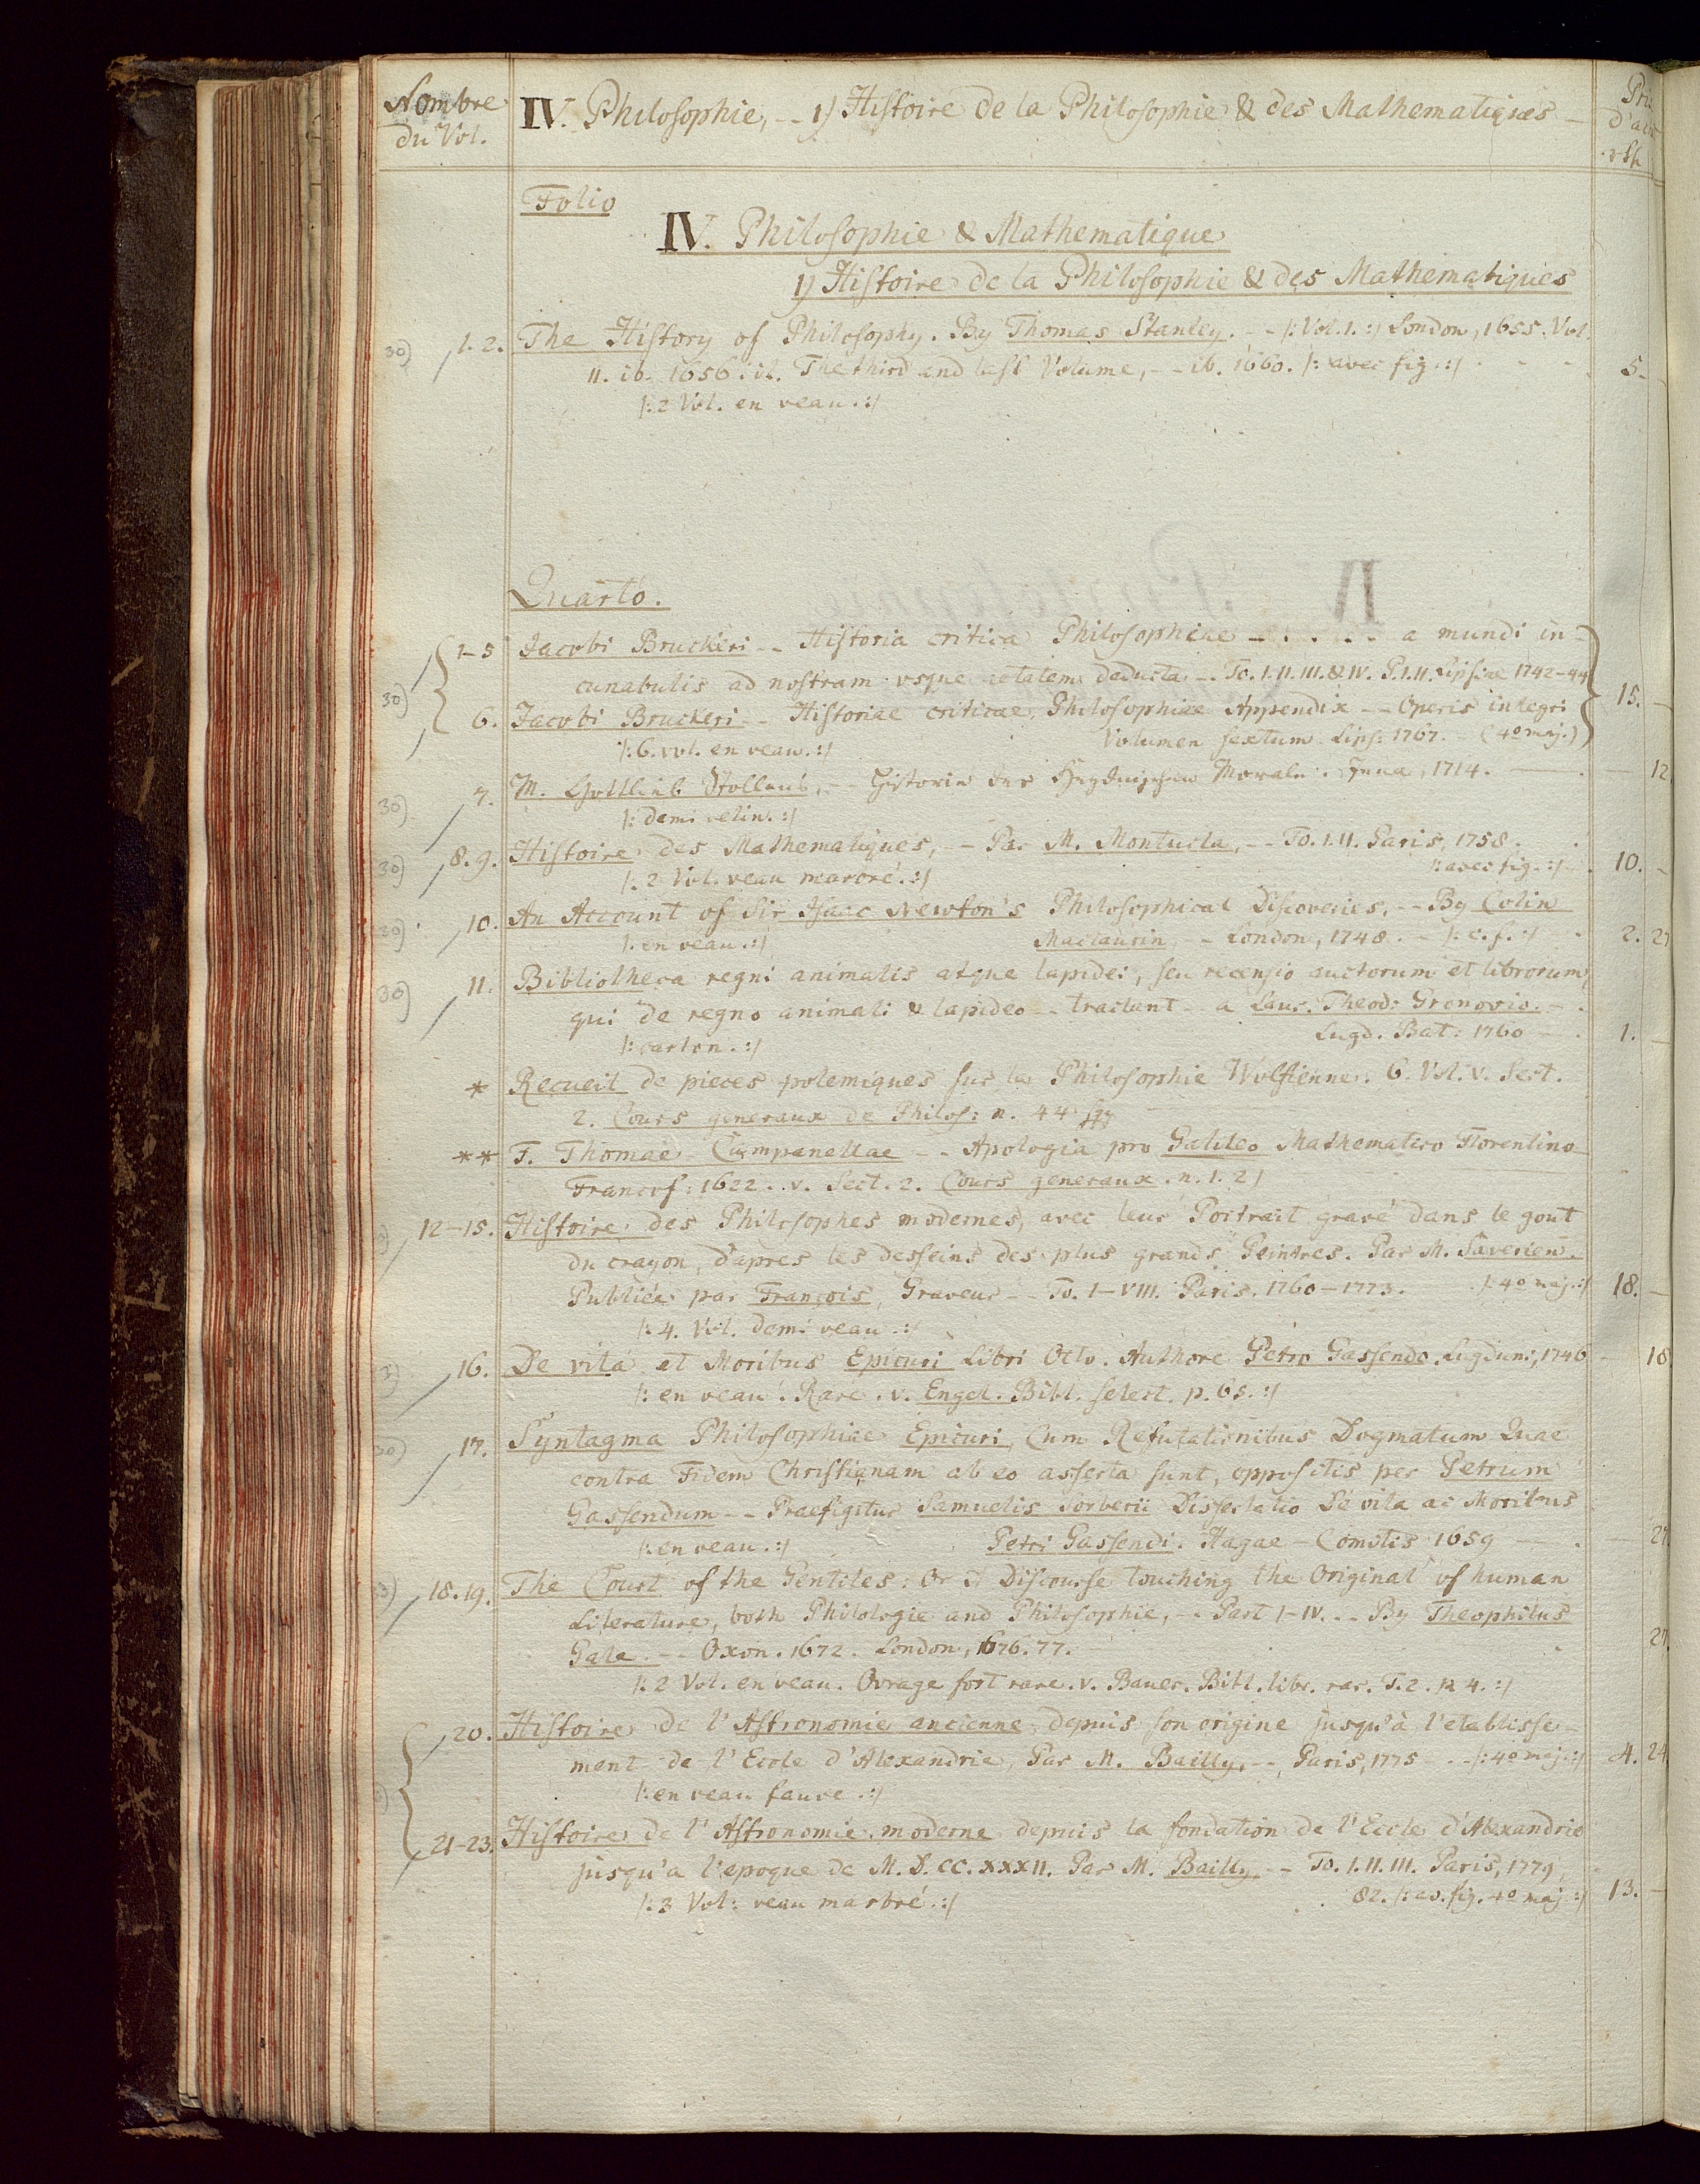 Nombre du Vol.
IV. Philosophie, -- 1) Histoire de la Philosophie & des Mathematiques
Folio
IV. Philosophie & Mathematique
1) Histoire de la Philosophie & des Mathematiques
30) 1. 2. The History of Philosophy. By Thomas Stanley. -- /: Vol. 1. :/ London, 1655. Vol.
II. ib. 1656. it. The third and last Volume, -- ib. 1660. /: avec fig. :/ 5.
/: 2 Vol. en veau. :/
Quarto.
1-5 Jacobi Bruckeri -- Historia critica Philosophiae - . . . . a mundi in-
cunabulis ad nostram usque aetatem deducta -. To. I. II. III. & IV. P. I. II. Lipsiae 1742-44
30) 6. Jacobi Bruckeri -- Historiae criticae Philosophiae Appendix -- Operis integri 15.
/: 6. vol. en veau. :/ Volumen sextum. Lips: 1767. - (4o maj.)
30) 7. M. Gottlieb Stollens, -- Historie der Heydnischen Morale. Jena, 1714. 12
/: demi velin. :/
30) 8. 9. Histoire des Mathematiques, -- Par M. Montucla, -- To. I. II. Paris, 1758.
/: 2 Vol. veau marbré. :/ /: avec fig. :/ 10.
30) 10. An Account of Sir Isaac Newton's Philosophical Discoveries, -- By Colin
/: en veau. :/ Maclaurin, -- London, 1748. - /: c. f. :/ 2.
30) 11. Bibliotheca regni animalis atque lapidei, seu recensio auctorum et librorum,
qui de regno animali & lapideo -- tractant -- a Laur. Theod: Gronovio. -
/: carton. :/ Lugd. Bat: 1760 1.
* Recueil de pieces polemiques sur la Philosophie Wolfienne. 6. Vol. v. Sect.
2. Cours generaux de Philos: n. 44 sqq
** F. Thomae Campanellae -- Apologia pro Galileo Mathematico Florentino
Francof: 1622. v. Sect. 2. Cours generaux. n. 1. 2)
12-15. Histoire des Philosophes modernes, avec leur Portrait gravé dans le gout
du crayon, d'apres les desseins des plus grands Peintres. Par M. Saverien.
Publiée par François, Graveur -- To. I-VIII. Paris. 1760-1773. /: 4o maj. :/ 18.
/: 4. Vol. demi veau. :/
16. De vita et Moribus Epicuri Libri Octo. Authore Petro Gassendo. Lugduni, 1746 18
/: en veau. Rare. v. Engel. Bibl. select. p. 65. :/
30) 17. Syntagma Philosophiae Epicuri, Cum Refutationibus Dogmatum Quae
contra Fidem Christianam ab eo asserta sunt, oppositis per Petrum
Gassendum -- Praefigitur Samuelis Sorberii Dissertatio De vita ac Moribus
/: en veau. :/ Petri Gassendi. Hagae-Comitis 1659
18. 19. The Court of the Gentiles: Or A Discourse touching the Original of human
Literature, both Philologie and Philosophie, -- Part I-IV. -- By Theophilus
Gale. -- Oxon. 1672. London, 1676. 77.
/: 2 Vol. en veau. Ovrage fort rare. v. Bauer. Bibl. libr. rar. T. 2. p. 4. :/
20. Histoire de l'Astronomie ancienne depuis son origine jusqu'à l'etablisse-
ment de l'Ecole d'Alexandrie, Par M. Bailly. --, Paris, 1775 -- /: 4o maj. :/ 4. 24
/: en veau fauve. :/
21-23. Histoire de l'Astronomie moderne depuis la fondation de l'Ecole d'Alexandrie
jusqu'a l'epoque de M. D. CC. XXXII. Par M. Bailly -- To. I. II. III. Paris, 1779,
/: 3 Vol: veau marbré. :/ 82. /: av. fig. 4o maj. :/ 13.